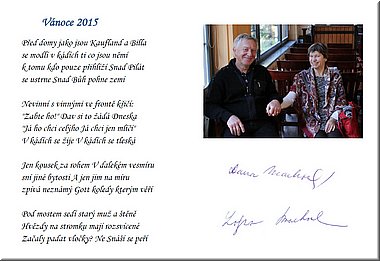 Vánoce 2015
Před domy jako jsou Kaufland a Billa
se modlí v kádích ti co jsou němí
k tomu kdo pouze přihlíží Snad Pilát
se ustrne Snad Bůh pohne zemí
Nevinní s vinnými ve frontě křičí:
"Zabte ho!" Dav si to žádá Dneska
"Já ho chci celýho Já chci jen mlíčí"
V kádích se žije V kádích se tleská
Jen kousek za rohem V dalekém vesmíru
sní jiné bytosti A jen jim na míru
zpívá neznámý Gott koledy kterým věří
Pod mostem sedí starý muž a štěně
Hvězdy na stromku mají rozsvícené
Začaly padat vločky? Ne Snáší se peří